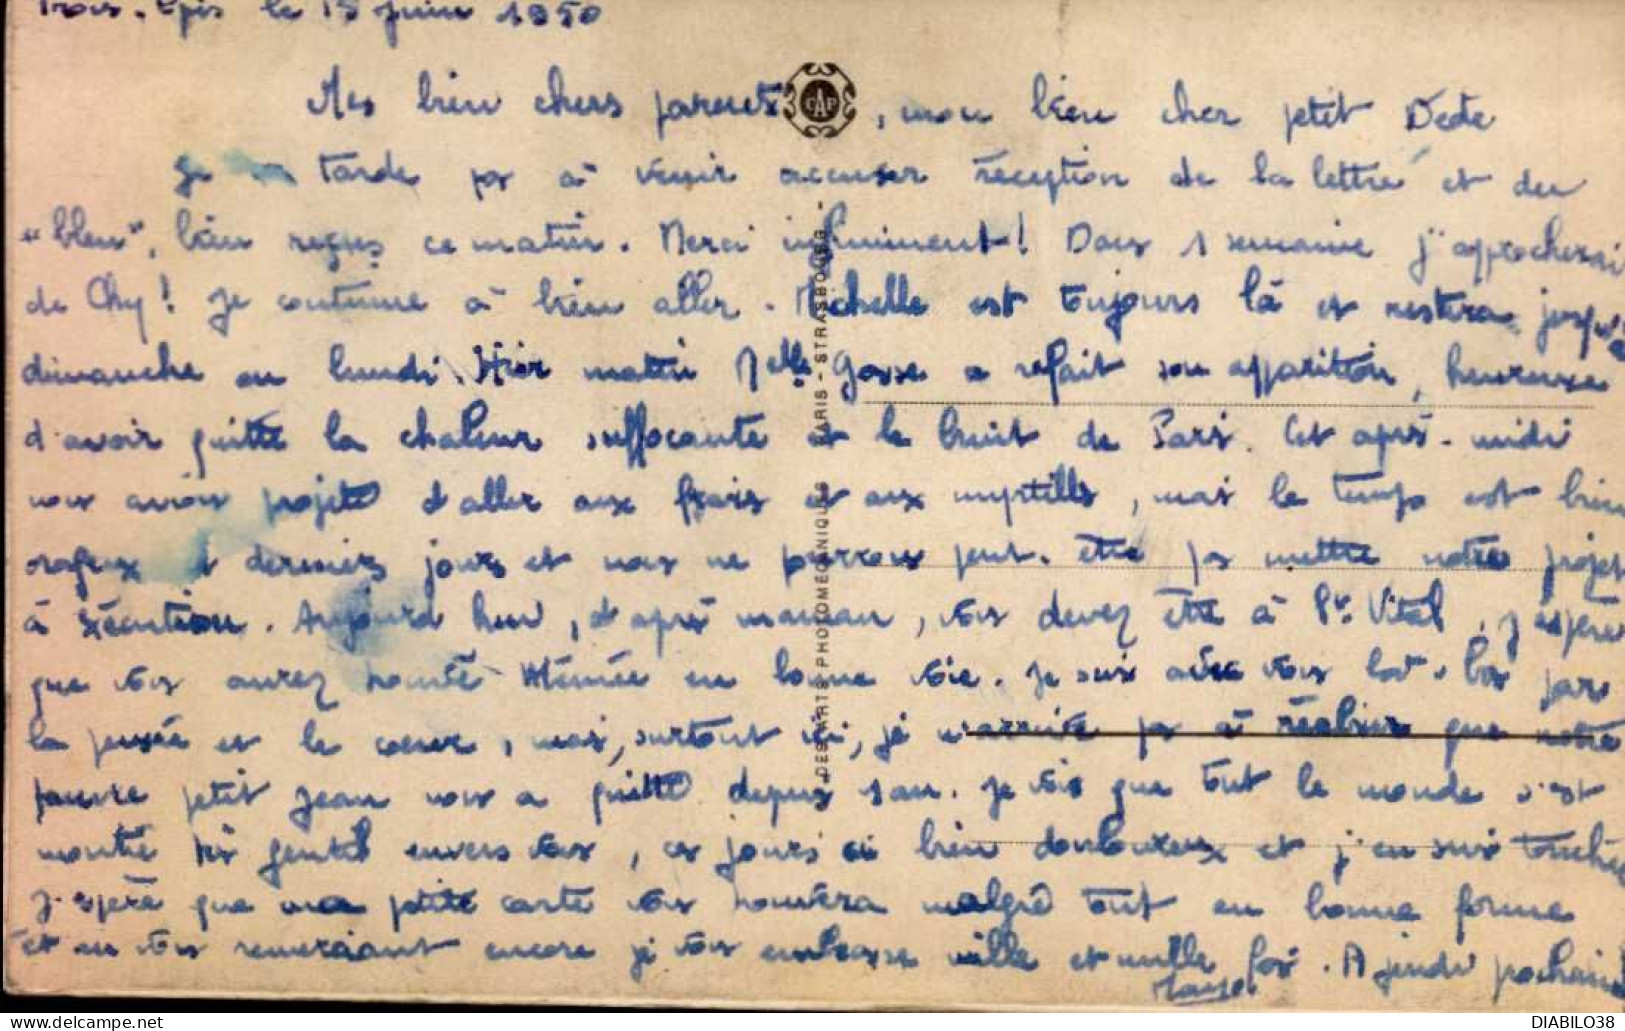 Trois-Epis le 15 Juin 1950
Mes bien chers parents, mon bien cher petit Dédé
Je tarde pas à venir accuser réception de la lettre et du
"bleu", bien reçus ce matin. Merci infiniment! Dans 1 semaine j'approcherai
de Chy! Je continue à bien aller. Michelle est toujours là et restera jusqu'à
dimanche ou lundi. Hier matin Melle Gosse a refait son apparition, heureuse
d'avoir quitté la chaleur suffocante et le bruit de Paris. Cet après-midi
nous avions projeté d'aller aux frais et aux myrtills, mais le temps est bien
orageux derniers jours et nous ne pourrons peut-être pas mettre notre projet
à exécution. Aujourd'hui, d'après maman, vous devez être à St Vital, j'espère
que vous aurez trouvé Mémée en bonne voie. Je suis avec vous là-bas par
la pensée et le coeur, mais, surtout ici, je n'arrive pas à réaliser que notre
pauvre petit Jean nous a quitté depuis 1 an. Je vois que tout le monde s'est
montré très gentil envers vous, ces jours si bien douloureux et j'en suis touchée
J'espère que ma petite carte vous trouvera malgré tout en bonne forme
et en vous remerciant encore je vous embrasse mille et mille fois. A jeudi prochain
CAP
DES ARTS PHOTOMÉCANIQUES - PARIS - STRASBOURG -
DIABILO38